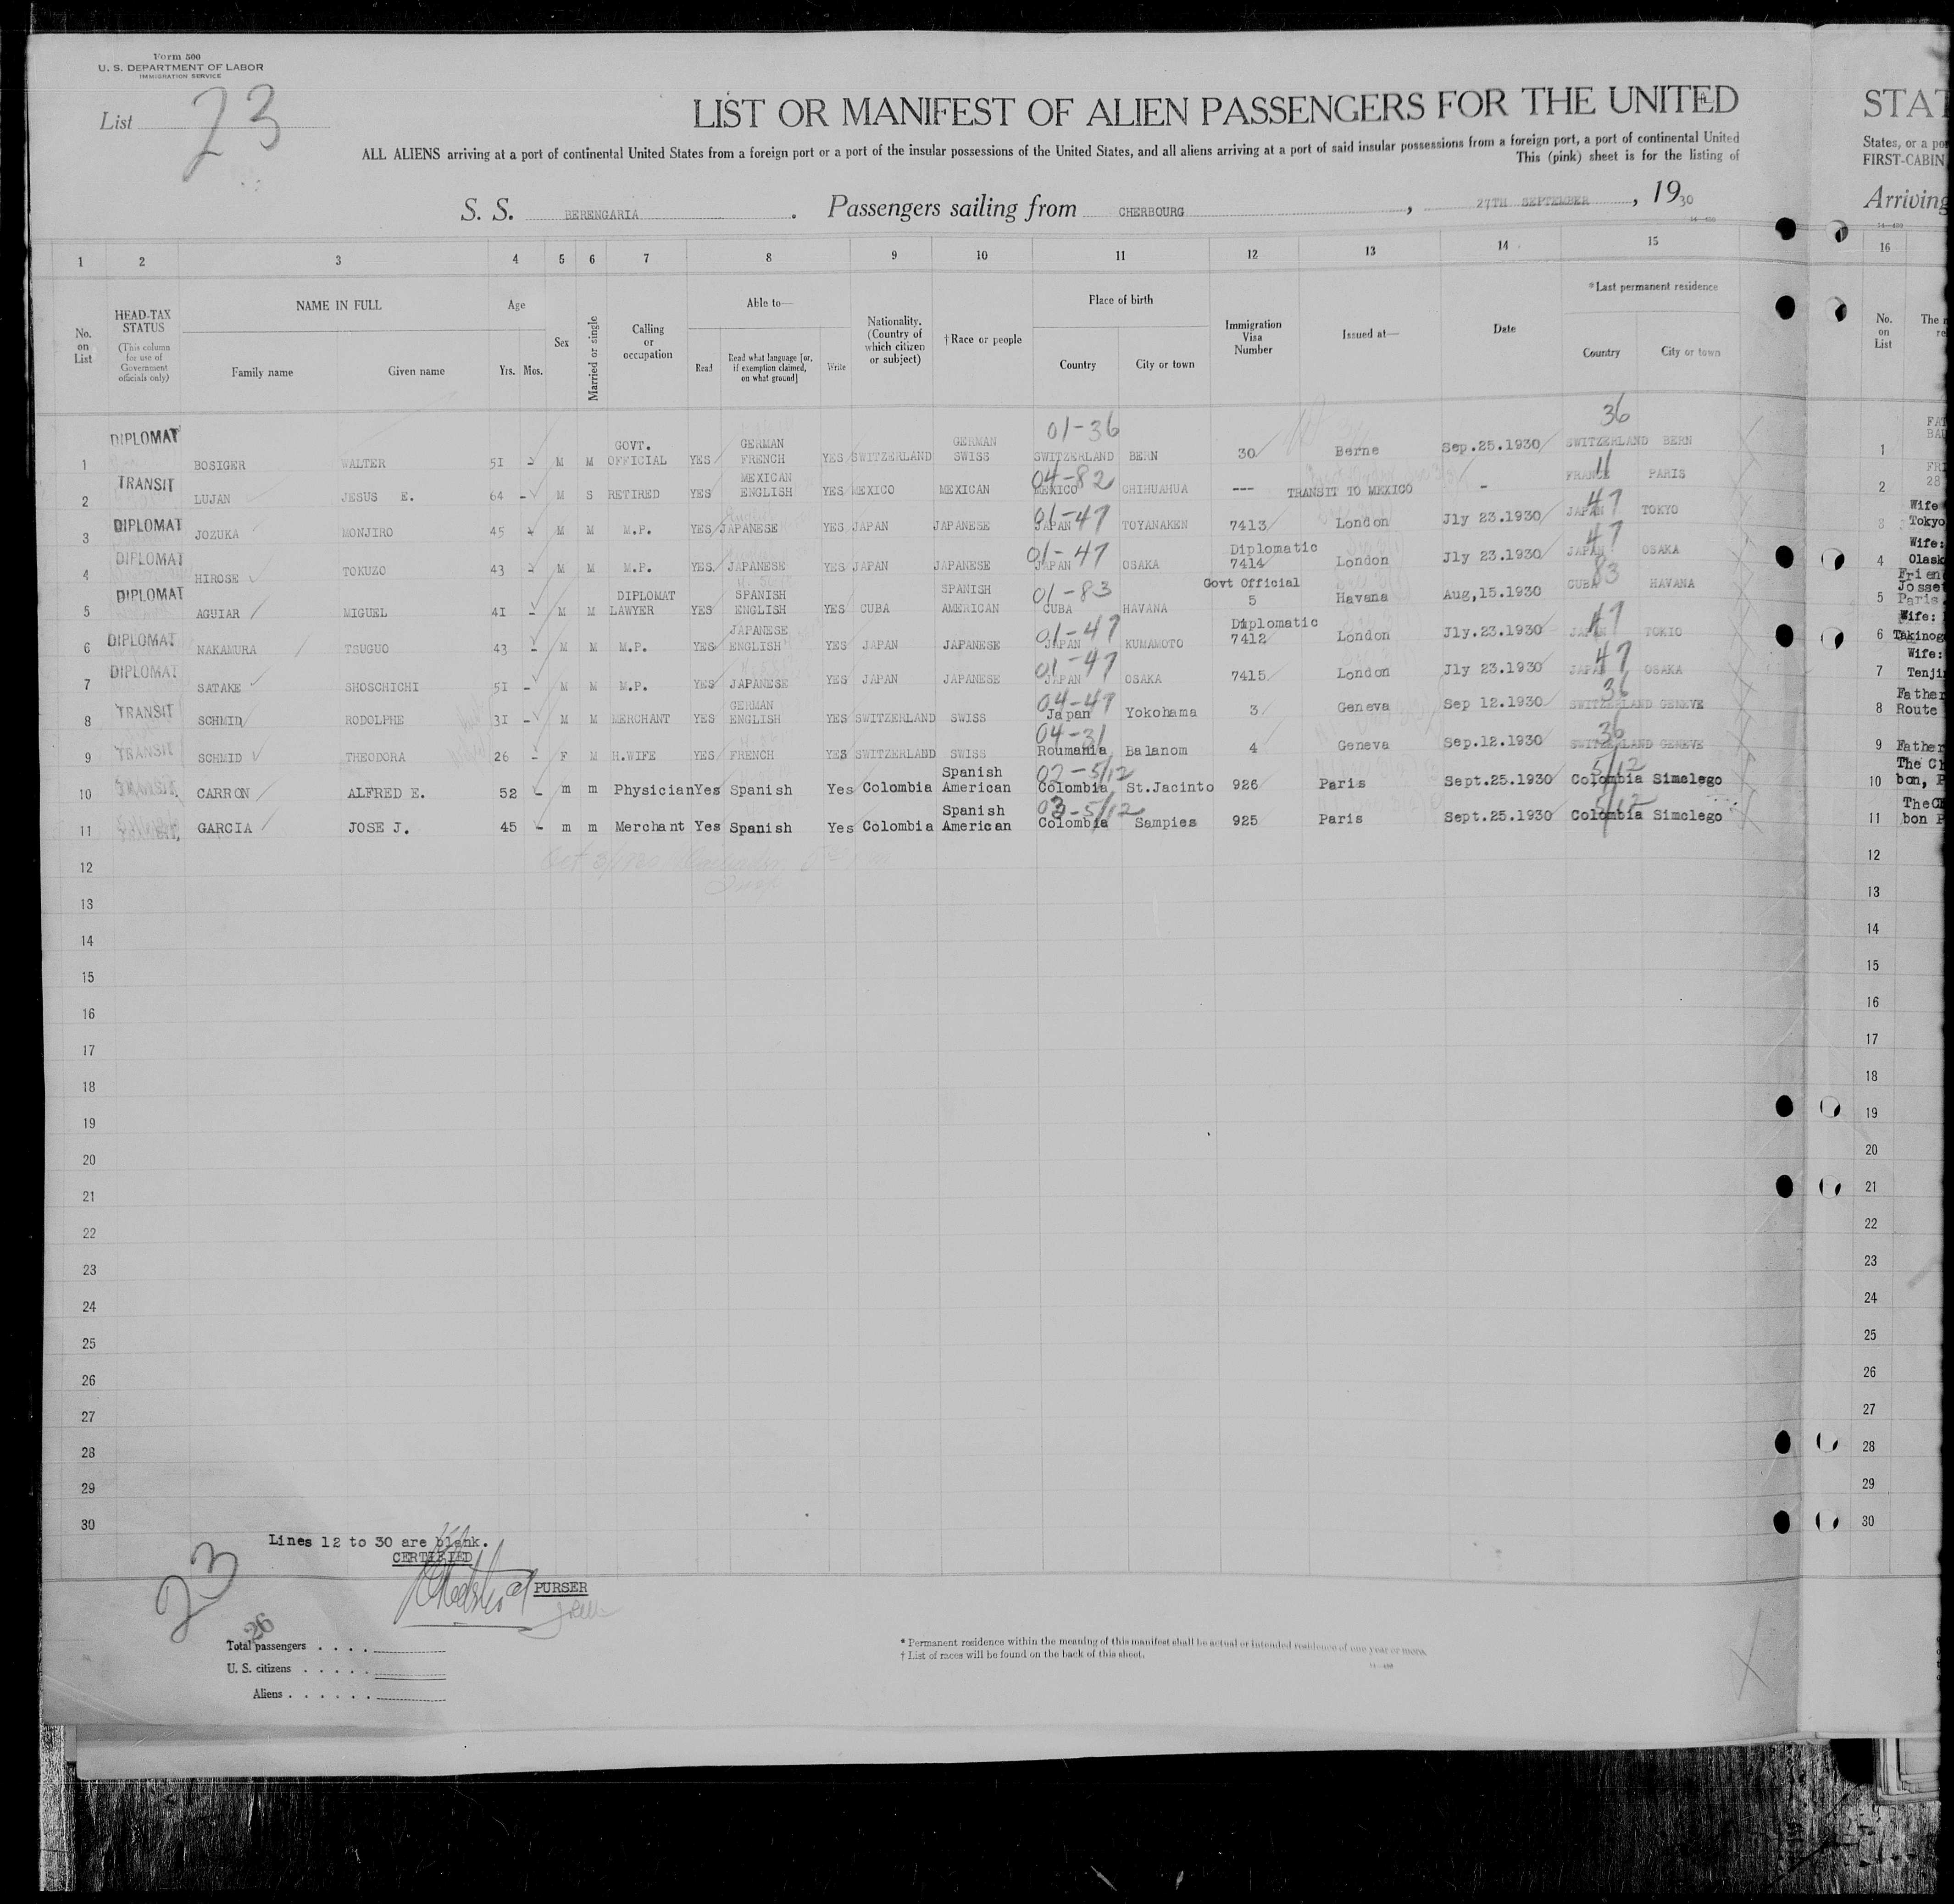 Form 500
U. S. DEPARTMENT OF LABOR
IMMIGRATION SERVICE
List 23
LIST OR MANIFEST OF ALIEN PASSENGERS FOR THE UNITED
ALL ALIENS arriving at a port of continental United States from a foreign port or a port of the insular possessions of the United States, and all aliens arriving at a port of said insular possessions from a foreign port, a port of continental United
This (pink) sheet is for the listing of
S. S. BERENGARIA. Passengers sailing from CHERBOURG, 27TH SEPTEMBER, 1930
STAT
States, or a po
FIRST-CABIN
Arriving
1 2 3 4 5 6 7 8 9 10 11 12 13 14 15 16
No. on List
HEAD-TAX STATUS
(This column for use of Government officials only)
NAME IN FULL
Family name Given name
Age
Yrs. Mos.
Sex
Married or single
Calling or occupation
Able to—
Read
Read what language [or, if exemption claimed, on what ground]
Write
Nationality. (Country of which citizen or subject)
†Race or people
Place of birth
Country City or town
Immigration Visa Number
Issued at—
Date
*Last permanent residence
Country City or town
No. on List
1 DIPLOMAT BOSIGER WALTER 51 M M GOVT. OFFICIAL YES GERMAN FRENCH YES SWITZERLAND GERMAN SWISS 01-36 SWITZERLAND BERN 30 Berne Sep.25.1930 36 SWITZERLAND BERN
2 TRANSIT LUJAN JESUS E. 64 - M S RETIRED YES MEXICAN ENGLISH YES MEXICO MEXICAN 04-82 MEXICO CHIHUAHUA --- TRANSIT TO MEXICO - FRANCE PARIS
3 DIPLOMAT JOZUKA MONJIRO 45 M M M.P. YES JAPANESE YES JAPAN JAPANESE 01-47 JAPAN TOYANAKEN 7413 London Jly 23.1930 47 JAPAN TOKYO
4 DIPLOMAT HIROSE TOKUZO 43 M M M.P. YES JAPANESE YES JAPAN JAPANESE 01-47 JAPAN OSAKA Diplomatic 7414 London Jly 23.1930 47 JAPAN OSAKA
5 DIPLOMAT AGUIAR MIGUEL 41 - M M DIPLOMAT LAWYER YES SPANISH ENGLISH YES CUBA SPANISH AMERICAN 01-83 CUBA HAVANA Govt Official 5 Havana Aug,15.1930 83 CUBA HAVANA
6 DIPLOMAT NAKAMURA TSUGUO 43 - M M M.P. YES JAPANESE ENGLISH YES JAPAN JAPANESE 01-47 JAPAN KUMAMOTO Diplomatic 7412 London Jly.23.1930 47 JAPAN TOKIO
7 DIPLOMAT SATAKE SHOSCHICHI 51 - M M M.P. YES JAPANESE YES JAPAN JAPANESE 01-47 JAPAN OSAKA 7415 London Jly 23.1930 47 JAPAN OSAKA
8 TRANSIT SCHMID RODOLPHE 31 - M M MERCHANT YES GERMAN ENGLISH YES SWITZERLAND SWISS 04-47 Japan Yokohama 3 Geneva Sep 12.1930 36 SWITZERLAND GENEVE
9 TRANSIT SCHMID THEODORA 26 - F M H.WIFE YES FRENCH YES SWITZERLAND SWISS 04-31 Roumania Balanom 4 Geneva Sep.12.1930 36 SWITZERLAND GENEVE
10 CARRON ALFRED E. 52 - m m Physician Yes Spanish Yes Colombia Spanish American 02-5/12 Colombia St.Jacinto 926 Paris Sept.25.1930 5/12 Colombia Simclego
11 GARCIA JOSE J. 45 - m m Merchant Yes Spanish Yes Colombia Spanish American 03-5/12 Colombia Sampies 925 Paris Sept.25.1930 5/12 Colombia Simclego
12
13
14
15
16
17
18
19
20
21
22
23
24
25
26
27
28
29
30
Lines 12 to 30 are blank.
CERTIFIED
PURSER
23
26
Total passengers
U. S. citizens
Aliens
* Permanent residence within the meaning of this manifest shall be actual or intended residence of one year or more.
† List of races will be found on the back of this sheet.
1
2
3 Wife Tokyo
4 Wife:
5 Paris
6 Wife: Takinog
7 Wife: Tenji
8 Father Route
9 Father
10 The Ch bon, P
11 The Ch bon P
12
13
14
15
16
17
18
19
20
21
22
23
24
25
26
27
28
29
30